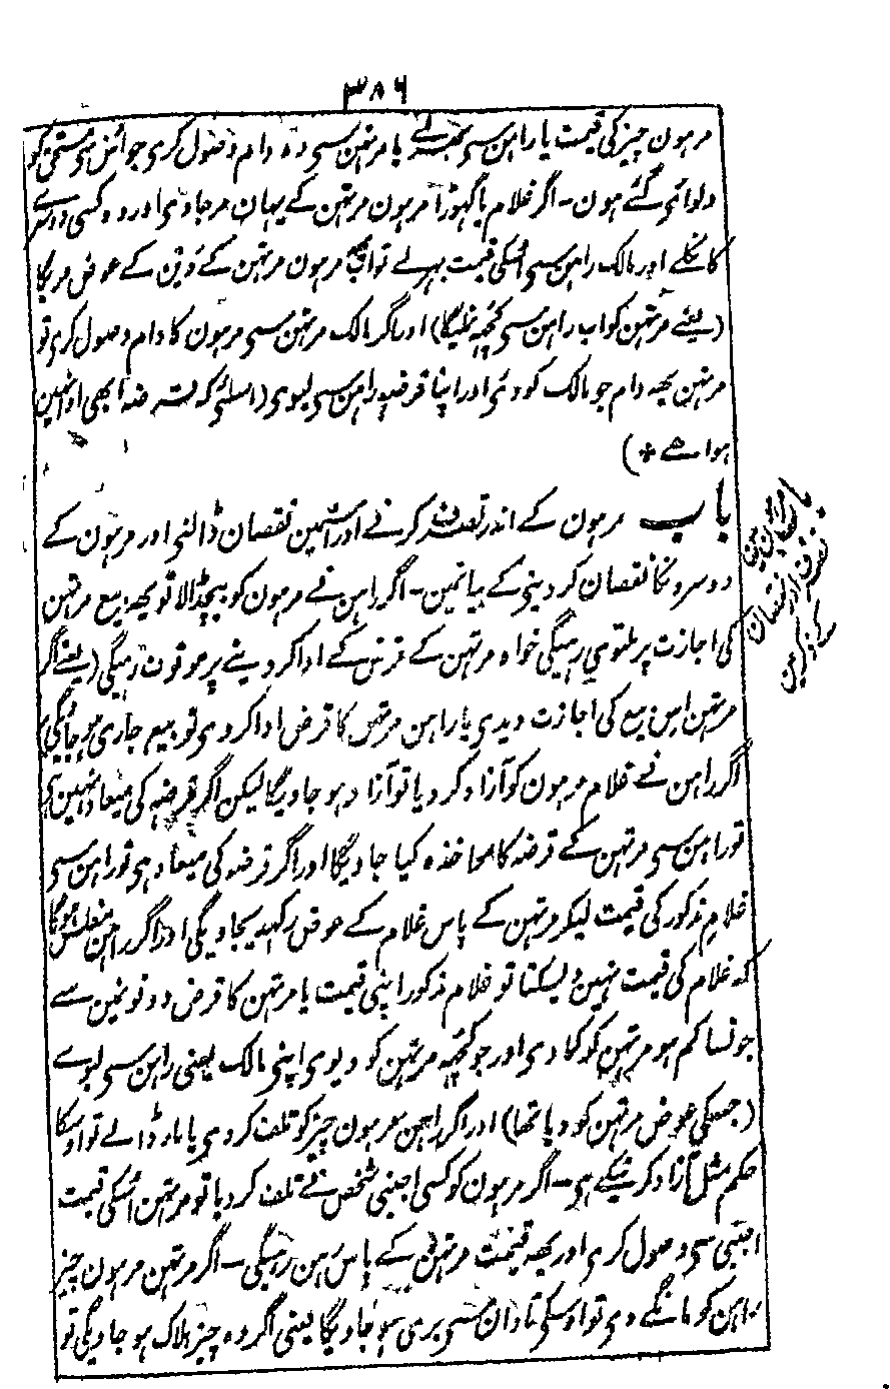 ۳۸۶
مرہون چیز کی قیمت یا راہن سی بھرلے یا مرتہن سی وہ دام وصول کری جو اس نی مستحق کو
دلوائی گئے ہون - اگر غلام یا گہوڑا مرہون مرتہن کے یہان مرجاوی اور وہ کسی دوسرے
کا نکلے اور مالک راہن سی اسکی قیمت بہرلے تو اب یہہ مرہون مرتہن کے دَین کے عوض مریگا
(یعنے مرتہن کو اب راہن سی کچہہ نملیگا) اور اگر مالک مرتہن سی مرہون کا دام وصول کری تو
مرتہن یہہ دام جو مالک کو دئی اور اپنا قرضہ راہن سی لیوی (اسلئی کہ قرضہ ابھی ادا نہین
ہوا ہے +)
باب مرہون کے اندر تصرف کرنے اور اسمین نقصان ڈالنی اور مرہون کے
دوسرونکا نقصان کر دینی کے بیانمین - اگر راہن نے مرہون کو بیچڈالا تو یہہ بیع مرتہن
کی اجازت پر ملتوی رہیگی خواہ مرتہن کے قرض کے ادا کر دینے پر موقوف رہیگی (یعنے اگر
مرتہن اِس بیع کی اجازت دیدی یا راہن مرتہن کا قرض ادا کر دی تو بیع جاری ہو جائیگی)
اگر راہن نے غلام مرہون کو آزاد کر دیا تو آزاد ہو جاویگا لیکن اگر قرضہ کی میعاد نہین ہی
تو راہن سی مرتہن کے قرضہ کا مواخذہ کیا جاویگا اور اگر قرضہ کی میعاد ہی تو راہن سی
غلام مذکور کی قیمت لیکر مرتہن کے پاس غلام کے عوض رکہدیجاویگی اور اگر راہن مفلس ہوگا
کہ غلام کی قیمت نہین دیسکتا تو غلام مذکور اپنی قیمت یا مرتہن کا قرض دونونمین سے
جونسا کم ہو مرتہن کو کما دی اور جو کچہہ مرتہن کو دیوی اپنی مالک یعنی راہن سی لیوے
(جسکی عوض مرتہن کو دیا تھا) اور اگر راہن مرہون چیز کو تلف کر دی یا مار ڈالے تو اوسکا
حکم مثل آزاد کرنیکے ہی - اگر مرہون کو کسی اجنبی شخص نے تلف کر دیا تو مرتہن اسکی قیمت
اجنبی سی وصول کری اور یہہ قیمت مرتہن کے پاس رہن رہیگی - اگر مرتہن مرہون چیز
راہن کو مانگے دی تو اوسکی تاوان سی بری ہو جاویگا یعنی اگر وہ چیز ہلاک ہو جاویگی تو
باب مرہون مین
تصرف اور نقصان
کے ذکر مین